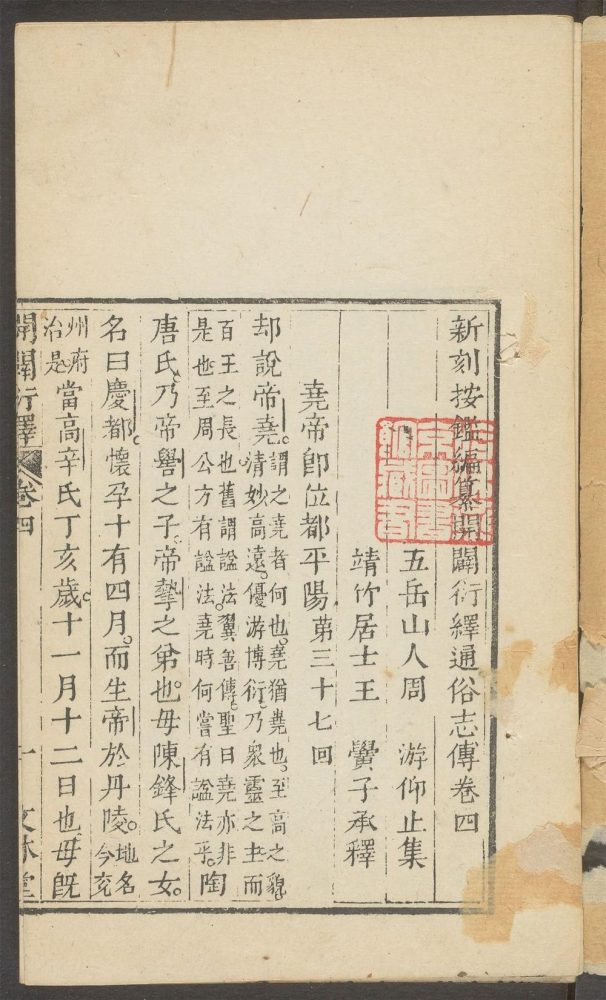 新刻按鑑編纂開闢衍繹通俗志傳卷四
五岳山人周　游仰止集
靖竹居士王　黌子承釋
堯帝即位都平陽第三十七回
却說帝堯。謂之堯者何也。堯猶嶤也。至高之貌。清妙高遠。優游博衍。乃衆靈之主而
百王之長也舊謂謚法。翼善傳聖曰堯亦非是也至周公方有謚法。堯時何嘗有謚法乎。陶
唐氏乃帝嚳之子。帝摯之弟也。母陳鋒氏之女。
名曰慶都。懷孕十有四月。而生帝於丹陵。地名今兗
州府治是。當高辛氏丁亥歲。十一月十二日也母既
開闢衍繹　卷四　一　文林堂